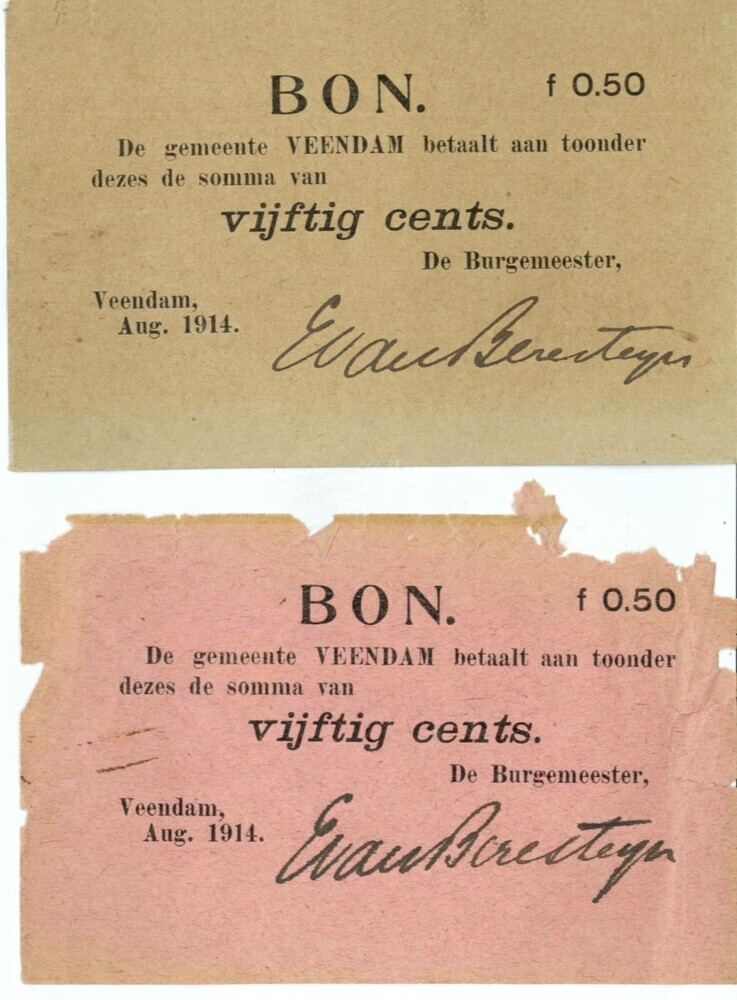 BON. f 0.50
De gemeente VEENDAM betaalt aan toonder
dezes de somma van
vijftig cents.
De Burgemeester,
Veendam,
Aug. 1914.
EvanBeresteyn
BON. f 0.50
De gemeente VEENDAM betaalt aan toonder
dezes de somma van
vijftig cents.
De Burgemeester,
Veendam,
Aug. 1914.
EvanBeresteyn